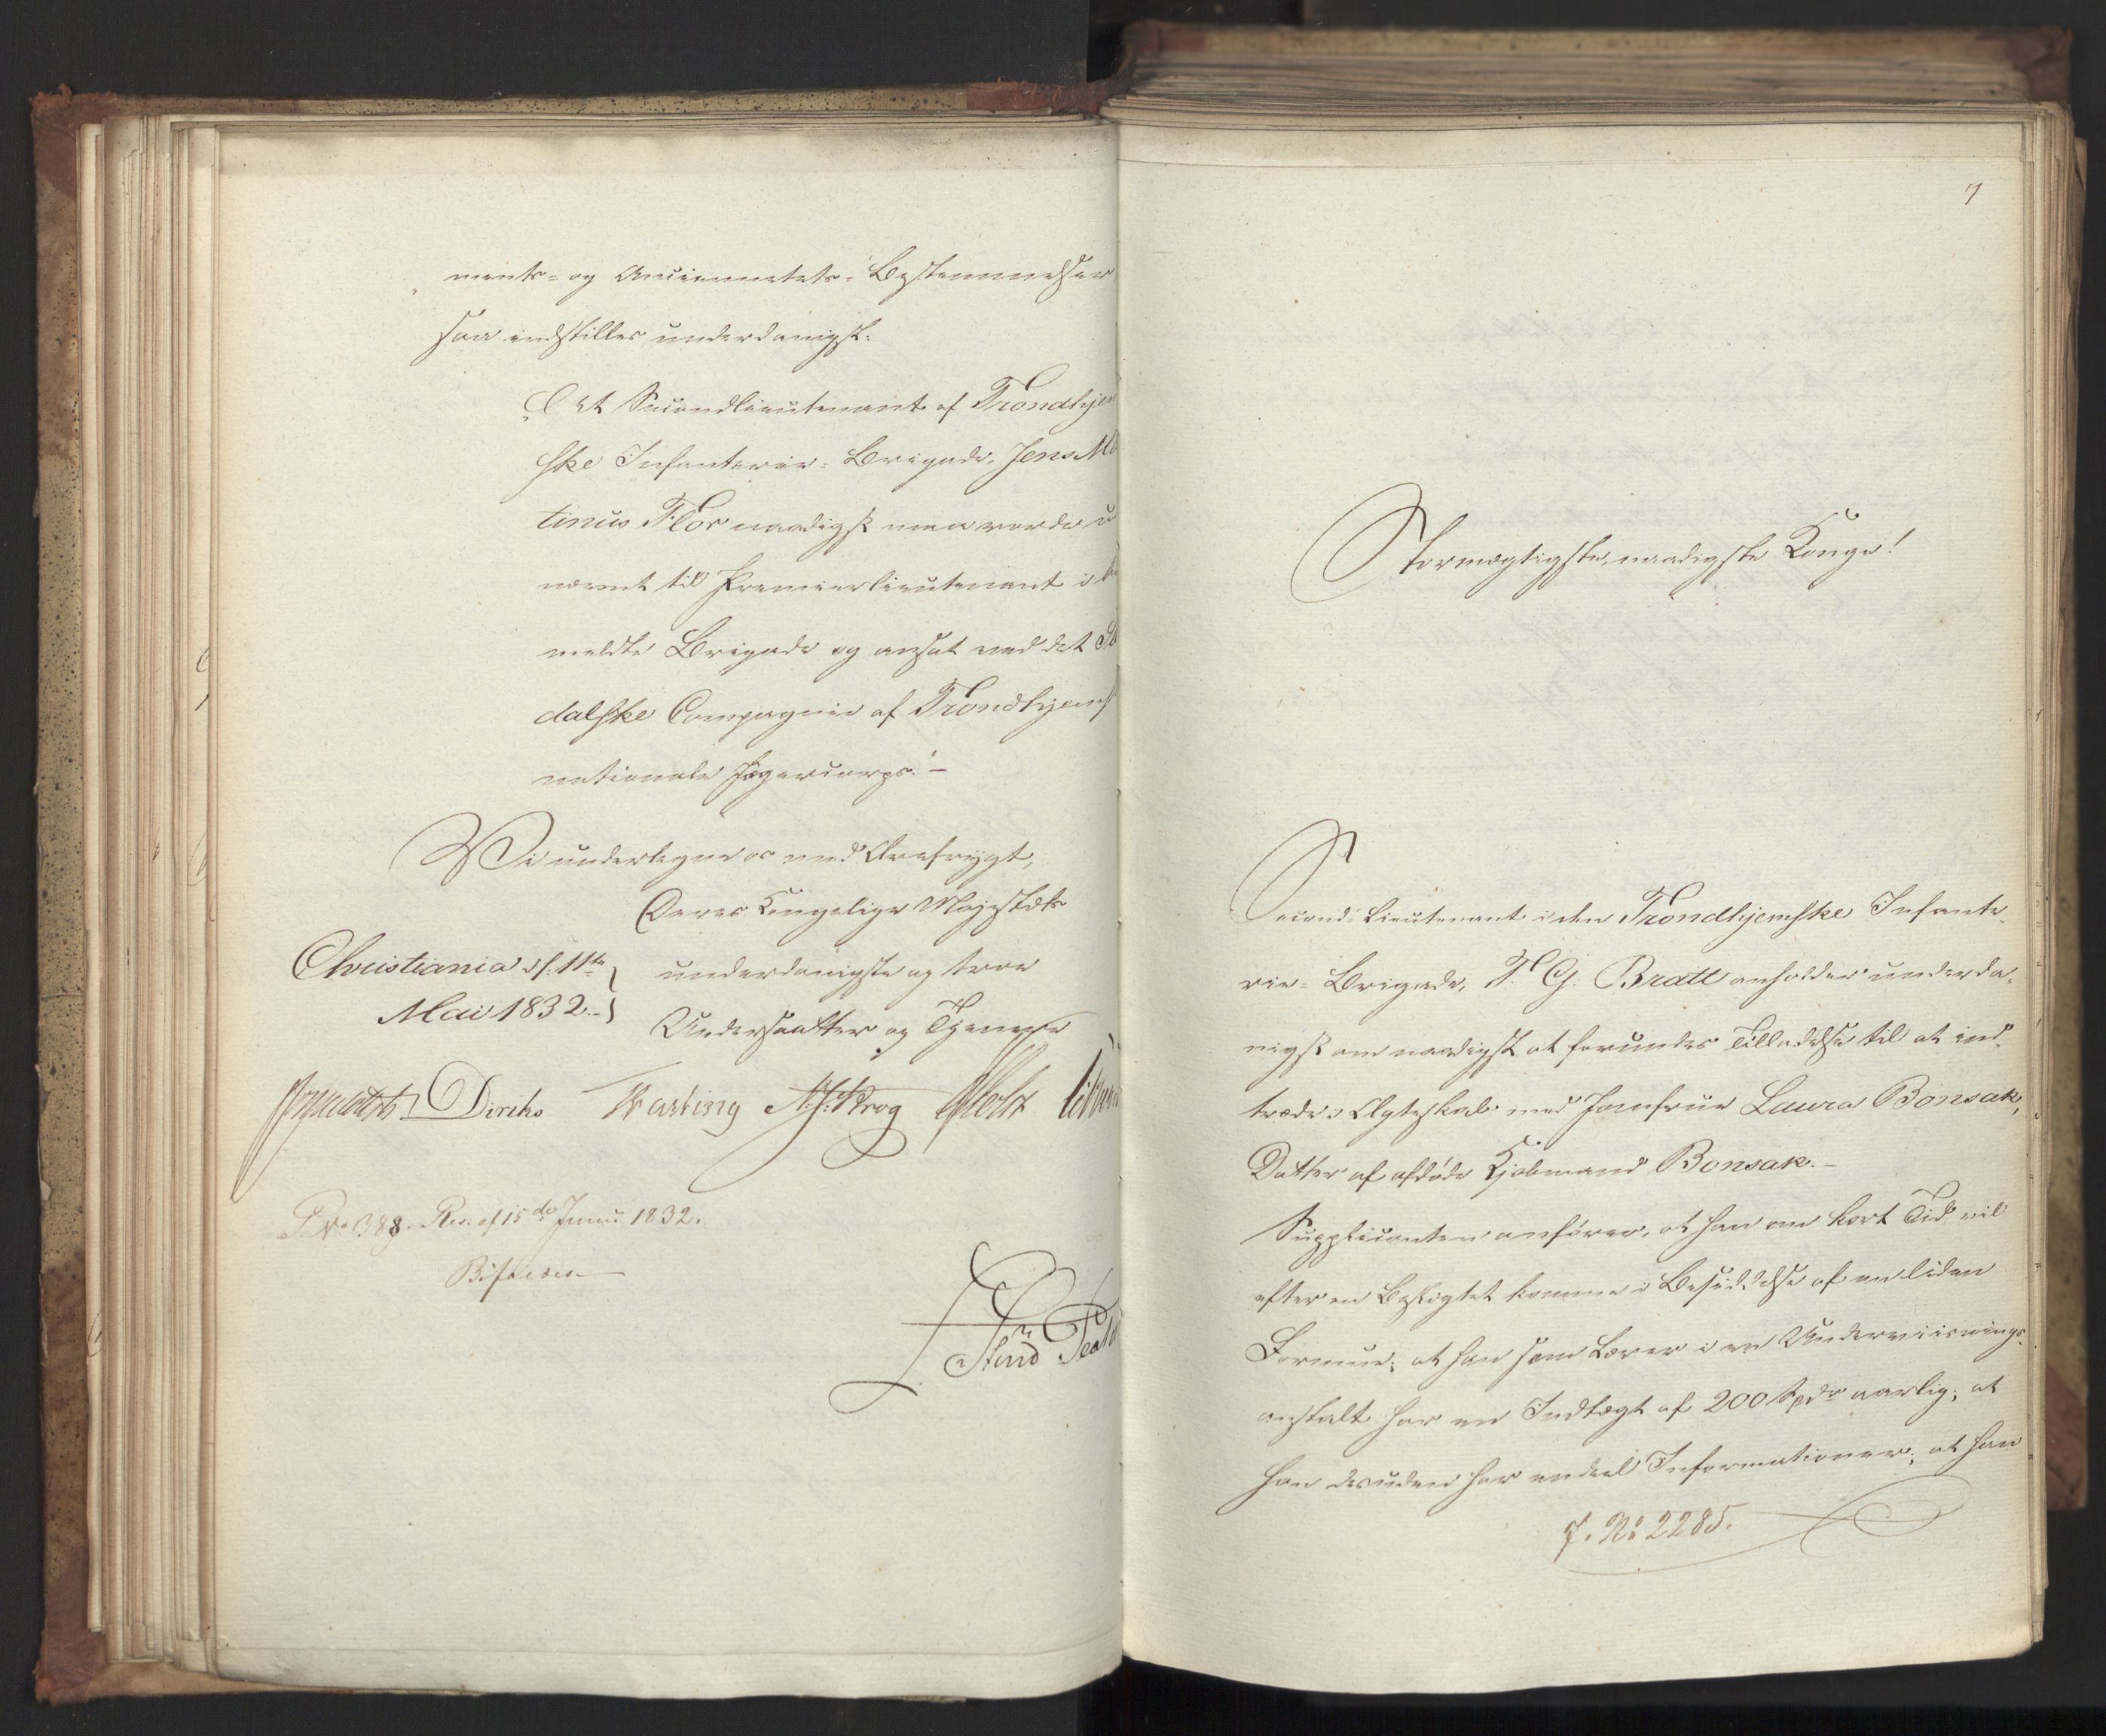 ments- og Anciennetets-Bestemmelser
saa indstilles underdanigst:
"At Secondlieutenant af Trondhjem
ske Infanterie-Brigade, Jens Ma
tinus Flor naadigst maa vorde u
nævnt til Premierlieutenant i be
meldte Brigade og ansat ved det
dalske Compagnie af Trondhjems
nationale Jægercorps." –
Vi undertegne os med Ærefrygt,
Deres Kongelige Majestæts
Christiania d: 11te underdanigste og troe
Mai 1832. Undersaatter og Tjenere
Diriks Vasting A. J. Krog Holst
P. No 388. Res. af 15de Junii 1832.
Bifaldes
7
Stormægtigste, naadigste Konge!
Second-Lieutenant i den Trondhjemske Infante-
rie-Brigade, T. G. Bratt anholder underda-
nigst om naadigst at forundes Tilladelse til at ind-
træde i Ægteskab med Jomfrue Laura Bonsak,
Datter af afdøde Kjøbmand Bonsak. –
Supplicanten anfører, at han om kort Tid vil
efter en Beslægtet komme i Besiddelse af en liden
Formue; at han som Lærer i en Underviisnings-
anstalt har en Indtægt af 200 Spdr aarlig; at
han desuden har endeel Informationer; at han
7. No 2285.